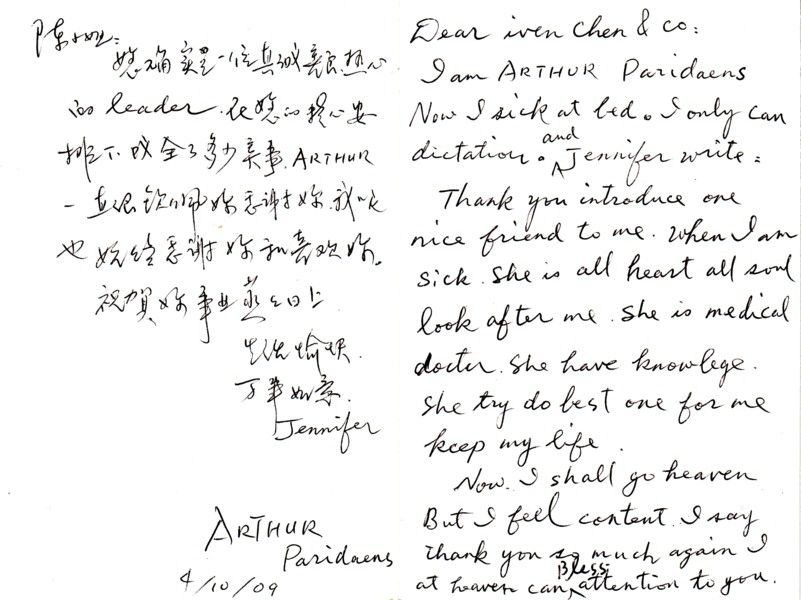 陈小姐:
您确实是一位真诚善良热心
的 leader. 在您的精心安
排下, 成全了多少美事. ARTHUR
一直很钦佩你, 感谢你. 我呢
也始终感谢你和喜欢你。
祝贺你事业蒸蒸日上
生活愉快.
万事如意.
Jennifer
ARTHUR
Paridaens
4/10/09
Dear iven Chen & co:
I am ARTHUR Paridaens
Now I sick at bed. I only can
dictation. and Jennifer write:
Thank you introduce one
nice friend to me. When I am
sick. She is all heart all soul
look after me. She is medical
docter. She have knowlege.
She try do best one for me
keep my life.
Now. I shall go heaven
But I feel content. I say
thank you so much again I
at heaven can Bless attention to you.